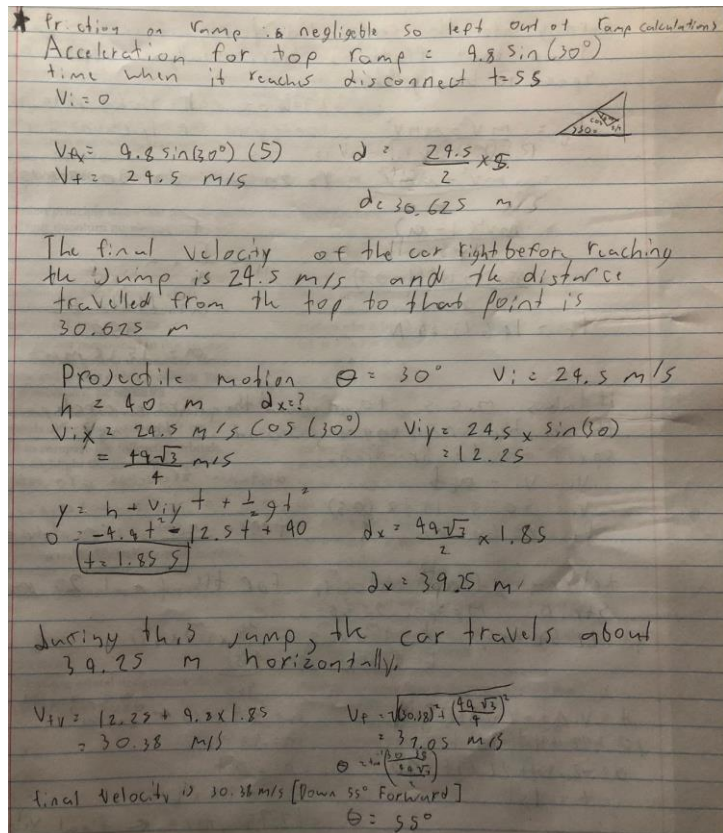 ★ Friction on ramp is negligible so left out of ramp calculations
Acceleration for top ramp = 9.8 sin (30°)
time when it reaches disconnect t=5s
Vi = 0
Vfx = 9.8 sin(30°) (5) d = 24.5/2 × 5
Vf = 24.5 m/s d = 30.625 m/s
The final velocity of the car right before reaching
the Jump is 24.5 m/s and the distance
travelled from the top to that point is
30.625 m
Projectile motion θ = 30° Vi = 24.5 m/s
h = 40 m dx=?
Vix = 24.5 m/s cos (30°) Viy = 24.5 × sin(30)
= 49√3/4 m/s = 12.25
y = h + Viy t + ½ g t²
0 = -4.9t² - 12.5t + 40 dx = 49√3/2 × 1.85
t = 1.85 s
dx = 39.25 m
during this jump, the car travels about
39.25 m horizontally.
Vfy = 12.25 + 9.8×1.85 Vf = √(30.38)² + (49√3/4)²
= 30.38 m/s = 37.05 m/s
final velocity is 30.38 m/s [Down 55° Forward]
θ = 55°